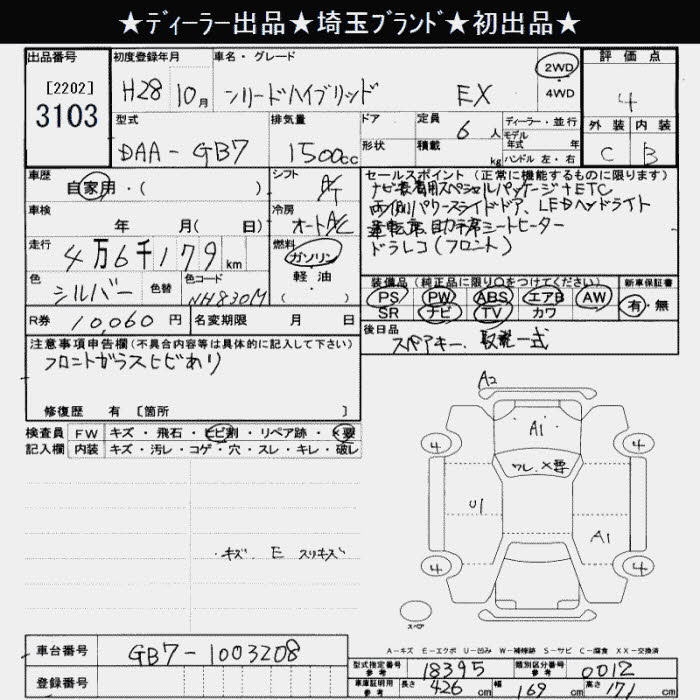 ★ディーラー出品★埼玉ブランド★初出品★
出品番号
[2202]
3103
初度登録年月
H28 10月
車名・グレード
シリードハイブリッド EX
2WD
・
4WD
評価点
4
外装 内装
C B
型式
DAA-GB7
排気量
1500cc
ドア
形状
定員
6人
積載
kg
ディーラー・並行
モデル
年式 年
ハンドル 左・右
車歴
自家用・( )
シフト
A/T
車検
年 月( 日)
冷房
オートA/C
走行
4万6千179km
燃料
ガソリン
軽・油
( )
色
シルバー
色替
色コード
NH830M
セールスポイント(正常に機能するものに限ります)
ナビ装着用スペシャルパッケージ+ETC
両側パワースライドドア、LEDヘッドライト
運転席助手席シートヒーター
ドラレコ(フロント)
装備品(純正品に限り○をつけてください)
PS PW ABS エアB AW
SR ナビ TV カワ
新車保証書
有・無
R券 10,060円
名変期限 月 日
後日品
スペアキー、取説一式
注意事項申告欄(不具合内容等は具体的に記入して下さい)
フロントガラスヒビあり
修復歴 有 [箇所 ]
検査員
記入欄
FW キズ・飛石・ヒビ割・リペア跡・×要
内装 キズ・汚レ・コゲ・穴・スレ・キレ・破レ
・キズ、E スリキズ
A2
A1
ワレ、×要
4
4
U1
A1
4
4
スペア
A-キズ E-エクボ U-凹み W-補修跡 S-サビ C-腐食 XX-交換済
車台番号
GB7-1003208
登録番号
型式指定番号
参考
18395
類別区分番号
参考
0012
車庫証明用
参考
長さ 426cm
幅 169cm
高さ 171cm